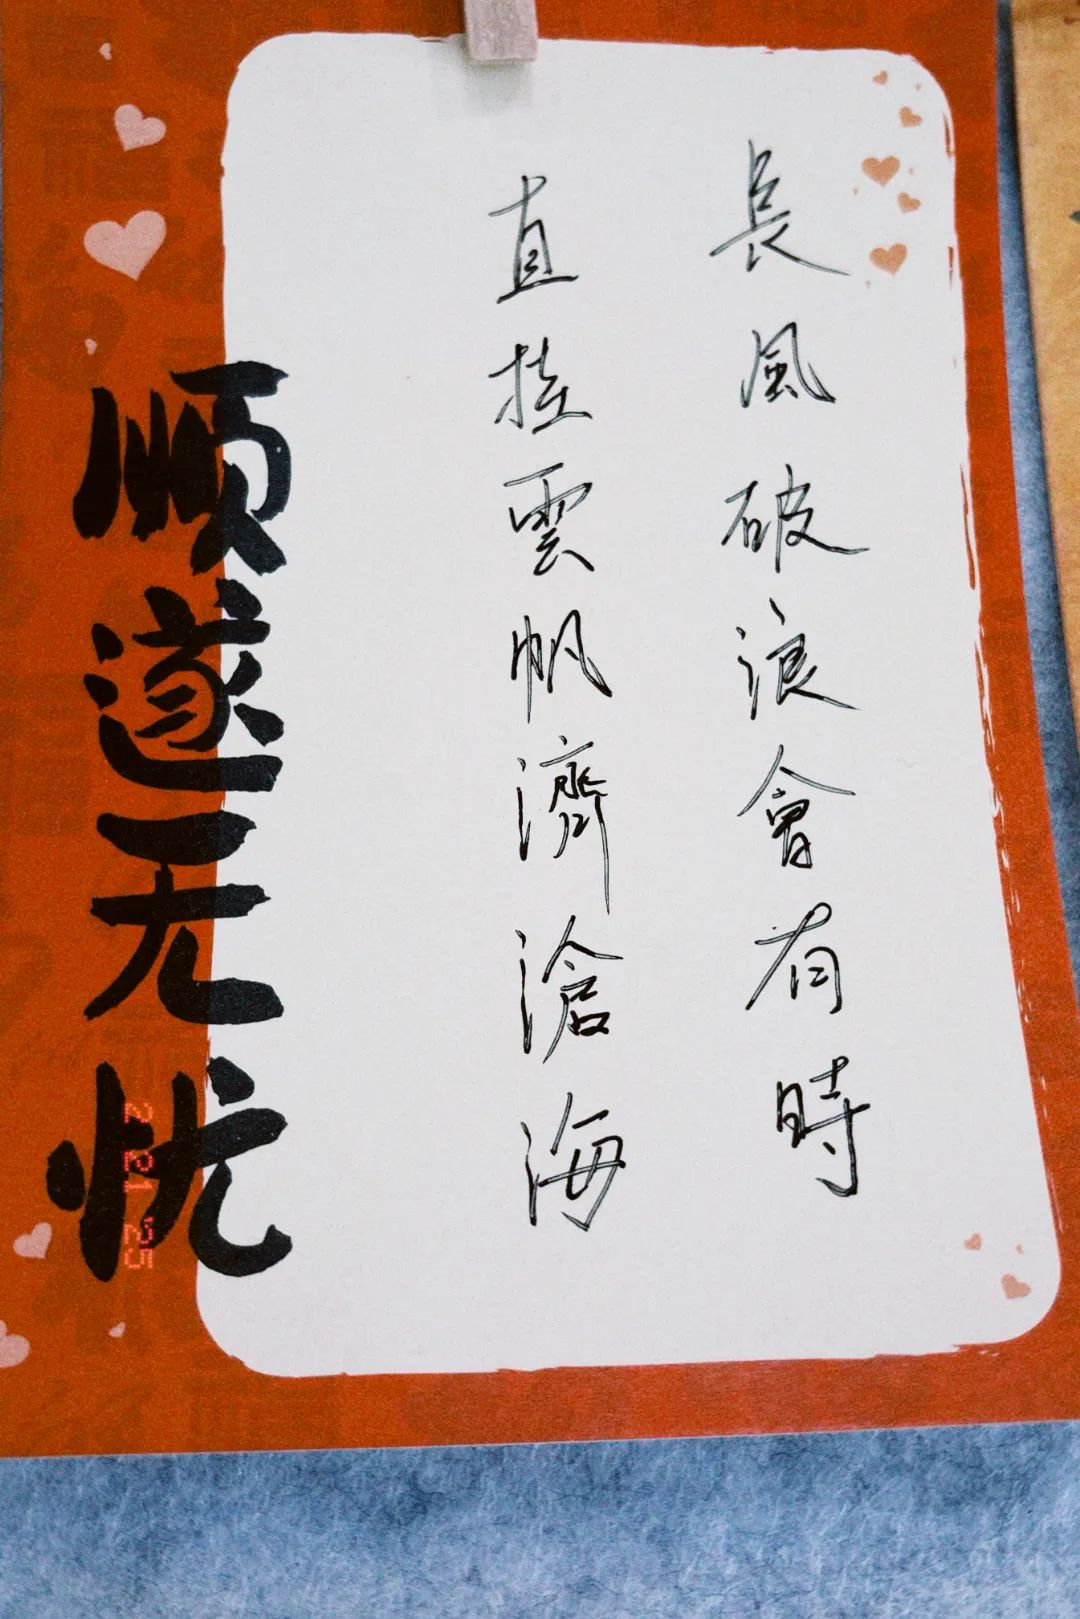 長風破浪會有時
直掛雲帆濟滄海
顺遂无忧
2 21 '25